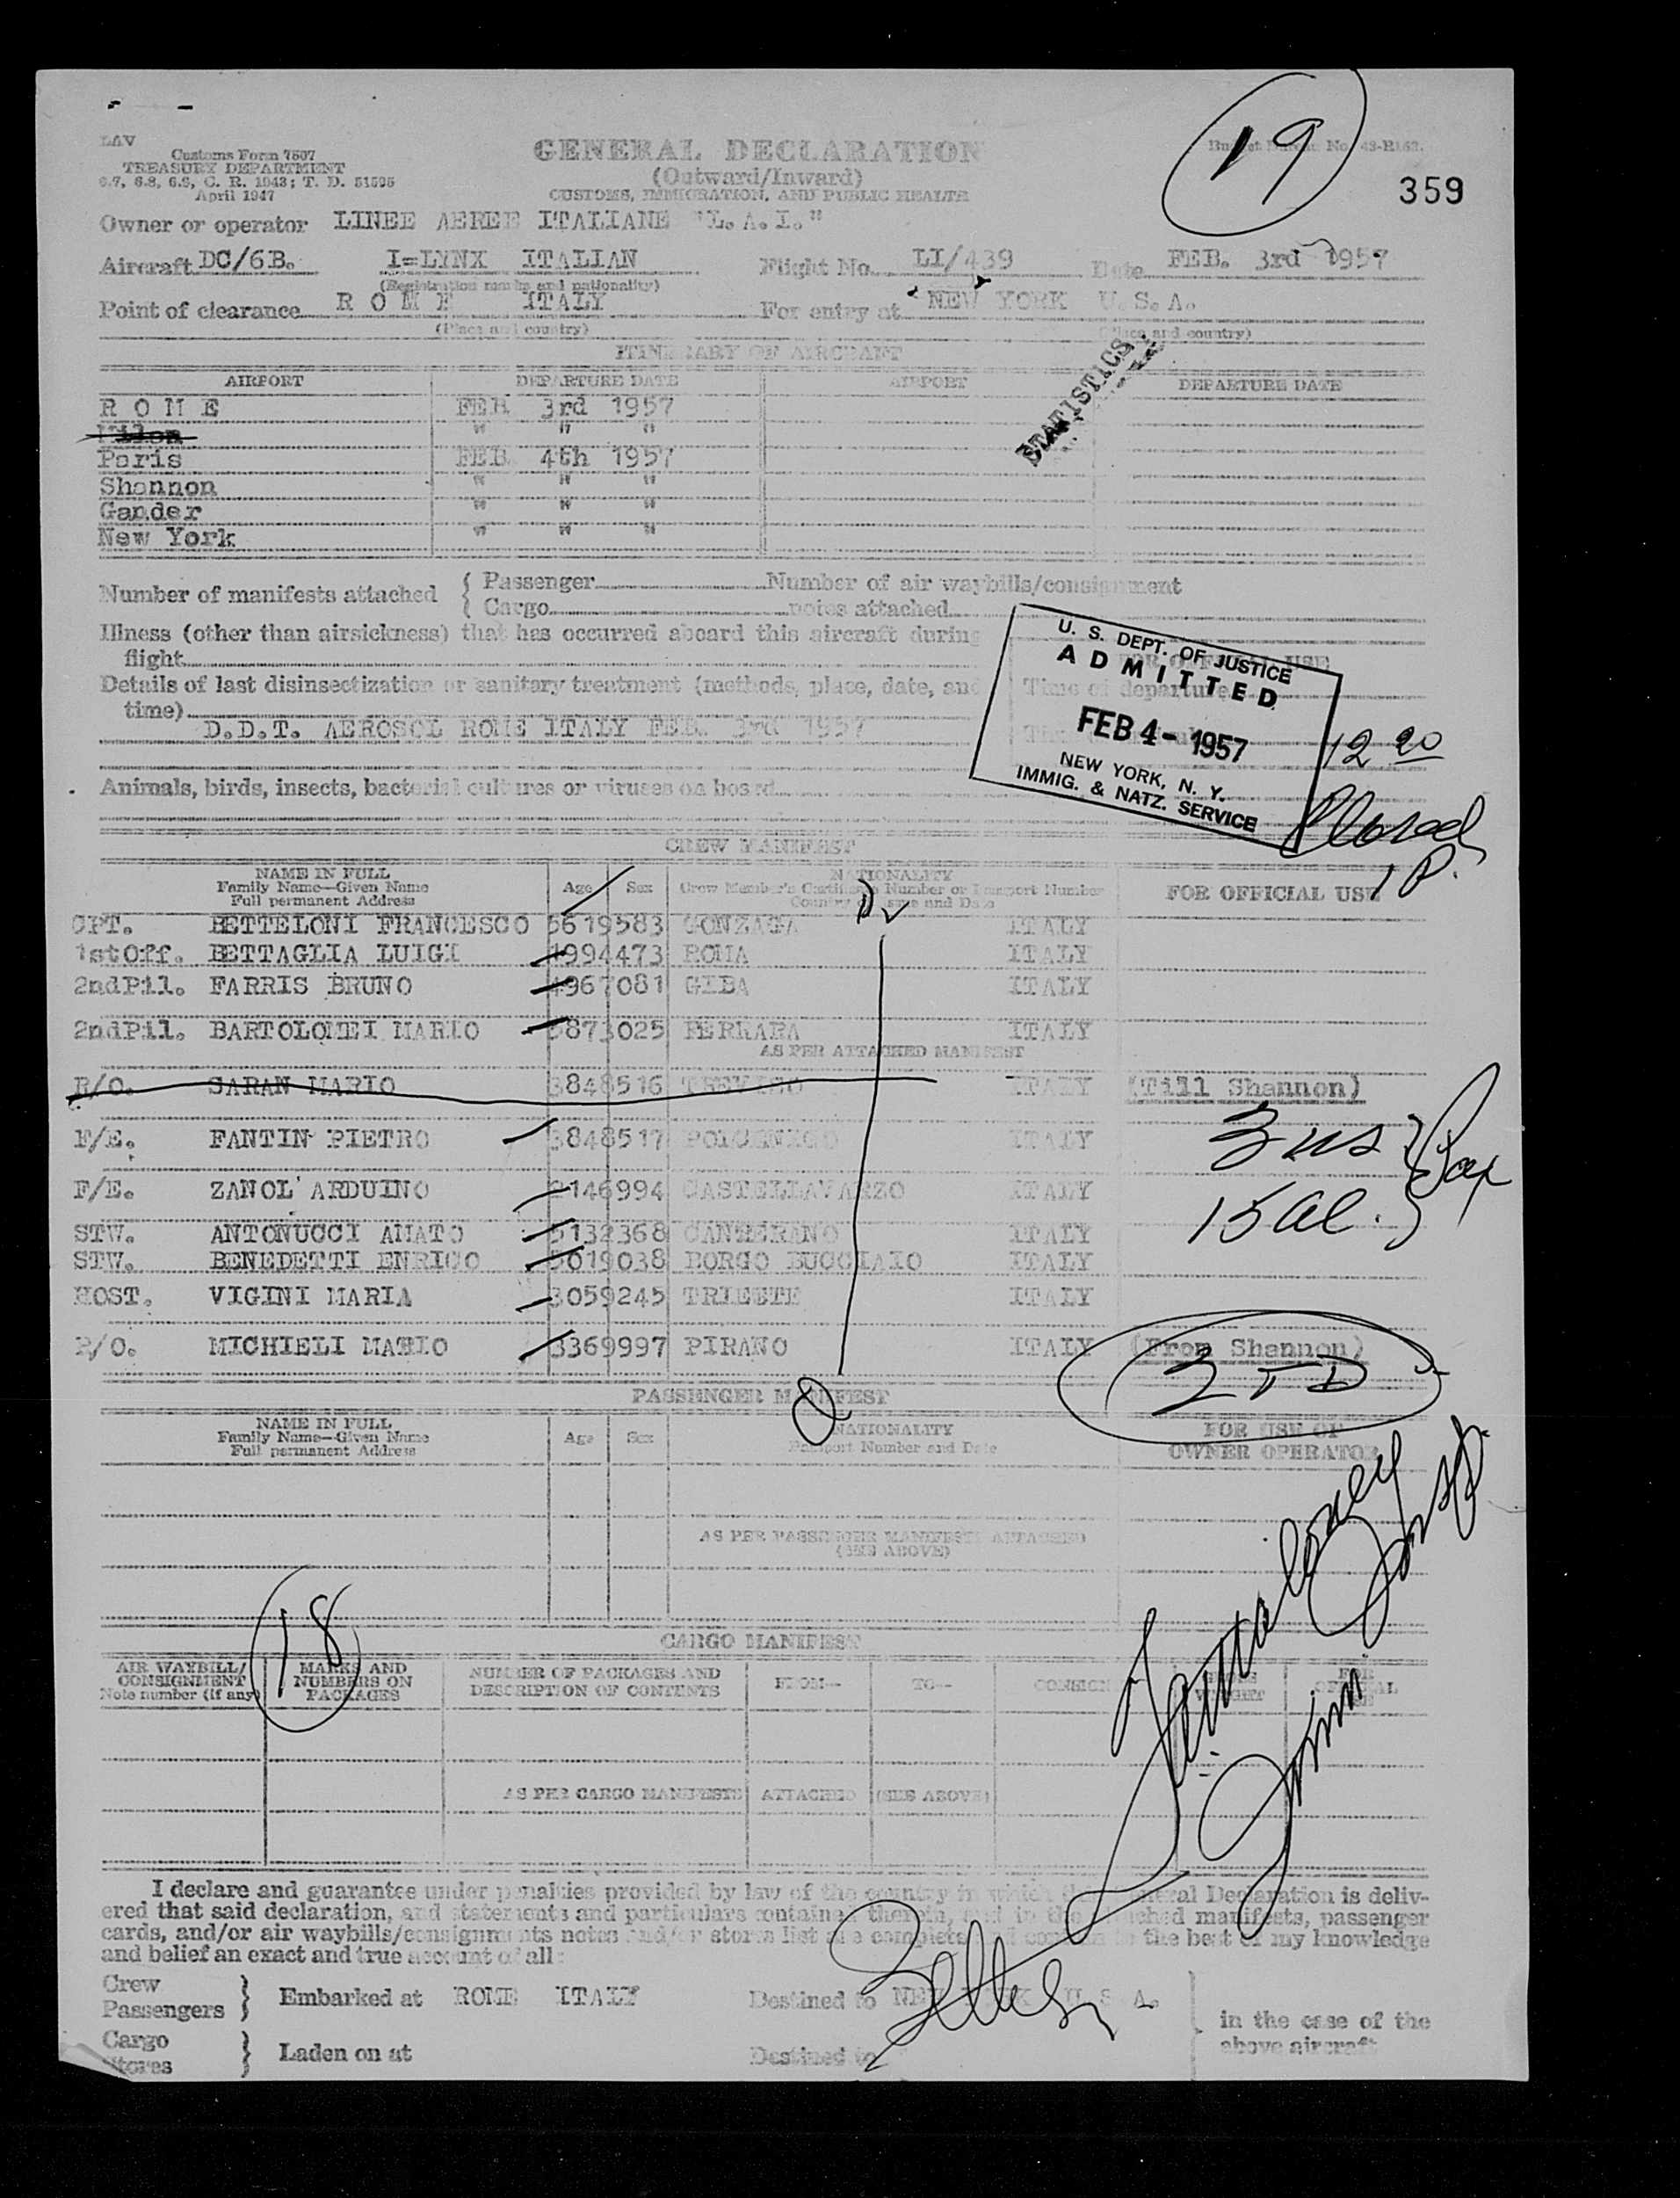 19
LAV
Customs Form 7507
TREASURY DEPARTMENT
6.7, 6.8, 6.9, C. R. 1943; T. D. 51595
April 1947
GENERAL DECLARATION
(Outward/Inward)
CUSTOMS, IMMIGRATION, AND PUBLIC HEALTH
359
Owner or operator LINEE AEREE ITALIANE "L.A.I."
Aircraft DC/6B. I=LYNX ITALIAN Flight No. LI/439 Date FEB. 3rd 1957
(Registration marks and nationality)
Point of clearance R O M E ITALY For entry at NEW YORK U.S.A.
(Place and country) (Place and country)
STATISTICS
ITINERARY OF AIRCRAFT
AIRPORT DEPARTURE DATE AIRPORT DEPARTURE DATE
R O M E FEB 3rd 1957
Milan " " "
Paris FEB 4th 1957
Shannon " " "
Gander " " "
New York " " "
Number of manifests attached { Passenger Number of air waybills/consignment
{ Cargo notes attached
Illness (other than airsickness) that has occurred aboard this aircraft during
flight
FOR OFFICIAL USE
Details of last disinsectization or sanitary treatment (methods, place, date, and
time)
Time of departure
D.D.T. AEROSOL ROME ITALY FEB. 3rd 1957
U. S. DEPT. OF JUSTICE
ADMITTED
FEB 4 - 1957
NEW YORK, N. Y.
IMMIG. & NATZ. SERVICE
12 20
Animals, birds, insects, bacterial cultures or viruses on board
1 P.
CREW MANIFEST
NAME IN FULL
Family Name—Given Name
Full permanent Address
Age Sex
NATIONALITY
Crew Member's Certificate Number or Passport Number
Country of Issue and Date
FOR OFFICIAL USE
CPT. BETTELONI FRANCESCO 5619583 GONZAGA ITALY
1stOff. BETTAGLIA LUIGI 4994473 ROMA ITALY
2ndPil. FARRIS BRUNO 4967081 GIBA ITALY
2ndPil. BARTOLOMEI MARIO 3873025 FERRARA ITALY
AS PER ATTACHED MANIFEST
R/O. SARAN MARIO 3848516 TREVISO ITALY (Till Shannon)
F/E. FANTIN PIETRO 3848517 POLCENIGO ITALY
3 us } Pax
F/E. ZANOL' ARDUINO 2146994 CASTELLAVAZZO ITALY
15 al.
STW. ANTONUCCI AMATO 5132368 CANTERANO ITALY
STW. BENEDETTI ENRICO 5019038 BORGO BUGGIAIO ITALY
HOST. VIGINI MARIA 3059245 TRIESTE ITALY
R/O. MICHIELI MARIO 3369997 PIRANO ITALY (From Shannon)
PASSENGER MANIFEST
NAME IN FULL
Family Name—Given Name
Full permanent Address
Age Sex
NATIONALITY
Passport Number and Date
FOR USE OF
OWNER OPERATOR
AS PER PASSENGER MANIFEST ATTACHED
(SEE ABOVE)
18
CARGO MANIFEST
AIR WAYBILL/
CONSIGNMENT
Note number (if any)
MARKS AND
NUMBERS ON
PACKAGES
NUMBER OF PACKAGES AND
DESCRIPTION OF CONTENTS
FROM— TO—
AS PER CARGO MANIFESTS ATTACHED (SEE ABOVE)
I declare and guarantee under penalties provided by law of the country in which this General Declaration is deliv-
ered that said declaration, and statements and particulars contained therein, and in the attached manifests, passenger
cards, and/or air waybills/consignments notes and/or stores list are complete and contain to the best of my knowledge
and belief an exact and true account of all:
Crew
Passengers } Embarked at ROME ITALY Destined to NEW YORK U.S.A.
Cargo
Stores } Laden on at Destined to
in the case of the
above aircraft